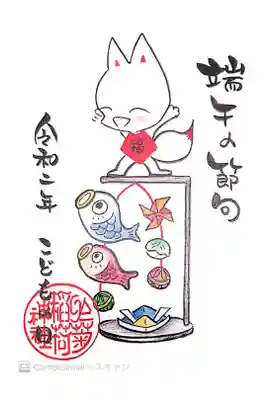 端午の節句
令和二年 こどもの日
福
於菊
稲荷
神社
CamScannerでスキャン